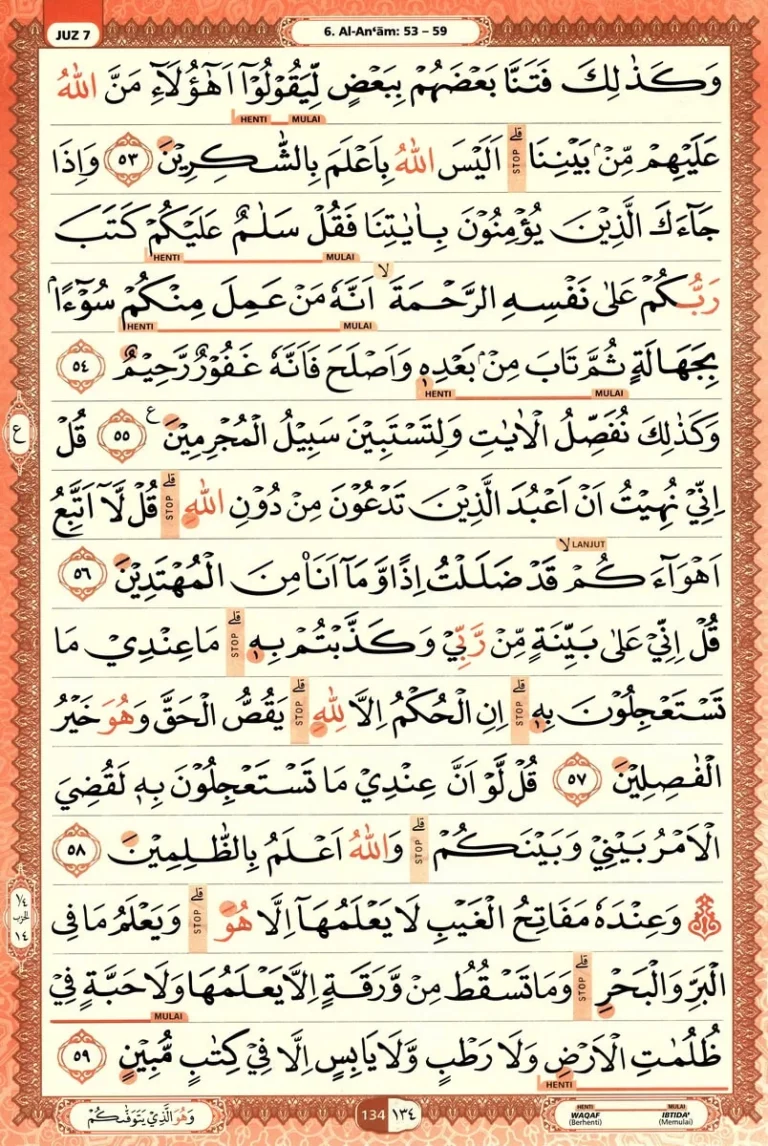 JUZ 7
6. Al-An‘ām: 53 – 59
وَكَذٰلِكَ فَتَنَّا بَعْضَهُمْ بِبَعْضٍ لِّيَقُوْلُوْٓا اَهٰٓؤُلَاۤءِ مَنَّ اللّٰهُ
HENTI MULAI
عَلَيْهِمْ مِّنْۢ بَيْنِنَاۗ اَلَيْسَ اللّٰهُ بِاَعْلَمَ بِالشّٰكِرِيْنَ ٥٣ وَاِذَا
STOP
جَاۤءَكَ الَّذِيْنَ يُؤْمِنُوْنَ بِاٰيٰتِنَا فَقُلْ سَلٰمٌ عَلَيْكُمْ كَتَبَ
HENTI MULAI
رَبُّكُمْ عَلٰى نَفْسِهِ الرَّحْمَةَۙ اَنَّهٗ مَنْ عَمِلَ مِنْكُمْ سُوْۤءًاۢ
HENTI MULAI
بِجَهَالَةٍ ثُمَّ تَابَ مِنْۢ بَعْدِهٖ وَاَصْلَحَ فَاَنَّهٗ غَفُوْرٌ رَّحِيْمٌ ٥٤
HENTI MULAI
وَكَذٰلِكَ نُفَصِّلُ الْاٰيٰتِ وَلِتَسْتَبِيْنَ سَبِيْلُ الْمُجْرِمِيْنَ ࣖ ٥٥ قُلْ
ع
اِنِّيْ نُهِيْتُ اَنْ اَعْبُدَ الَّذِيْنَ تَدْعُوْنَ مِنْ دُوْنِ اللّٰهِ ۗ قُلْ لَّآ اَتَّبِعُ
STOP
LANJUT
اَهْوَاۤءَكُمْۙ قَدْ ضَلَلْتُ اِذًا وَّمَآ اَنَا۠ مِنَ الْمُهْتَدِيْنَ ٥٦
قُلْ اِنِّيْ عَلٰى بَيِّنَةٍ مِّنْ رَّبِّيْ وَكَذَّبْتُمْ بِهٖۗ مَا عِنْدِيْ مَا
STOP
تَسْتَعْجِلُوْنَ بِهٖۗ اِنِ الْحُكْمُ اِلَّا لِلّٰهِ ۗ يَقُصُّ الْحَقَّ وَهُوَ خَيْرُ
STOP STOP
الْفٰصِلِيْنَ ٥٧ قُلْ لَّوْ اَنَّ عِنْدِيْ مَا تَسْتَعْجِلُوْنَ بِهٖ لَقُضِيَ
الْاَمْرُ بَيْنِيْ وَبَيْنَكُمْ ۗ وَاللّٰهُ اَعْلَمُ بِالظّٰلِمِيْنَ ٥٨
STOP
۞ وَعِنْدَهٗ مَفَاتِحُ الْغَيْبِ لَا يَعْلَمُهَآ اِلَّا هُوَۗ وَيَعْلَمُ مَا فِى
STOP
١/٤
الحزب
١٤
الْبَرِّ وَالْبَحْرِۗ وَمَا تَسْقُطُ مِنْ وَّرَقَةٍ اِلَّا يَعْلَمُهَا وَلَا حَبَّةٍ فِيْ
STOP
MULAI
ظُلُمٰتِ الْاَرْضِ وَلَا رَطْبٍ وَّلَا يَابِسٍ اِلَّا فِيْ كِتٰبٍ مُّبِيْنٍ ٥٩
HENTI
وَهُوَ الَّذِيْ يَتَوَفّٰىكُمْ
134 ١٣٤
HENTI MULAI
WAQAF IBTIDA'
(Berhenti) (Memulai)